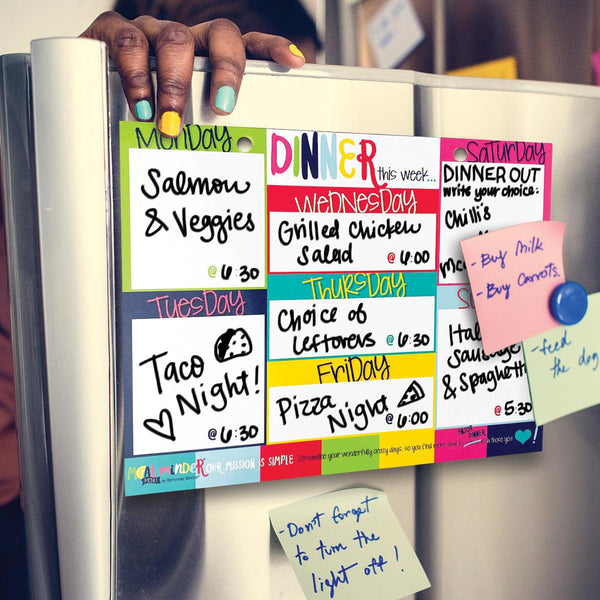 MONDAY
Salmon
& Veggies
@ 6:30
TUESDAY
Taco
Night!
@ 6:30
DINNER
this week...
WEDNESDAY
Grilled Chicken
Salad @ 6:00
THURSDAY
Choice of
Leftovers @ 6:30
FRIDAY
Pizza
Night @ 6:00
SATURDAY
DINNER OUT
write your choice:
Chilli's
& Spaghetti
@ 5:30
MEALMINDER OUR MISSION IS SIMPLE Streamline your wonderfully crazy days, so you find more time
in those you
- Buy Milk
- Buy Carrots.
- feed
the dog
- Don't forget
to turn the
light off!